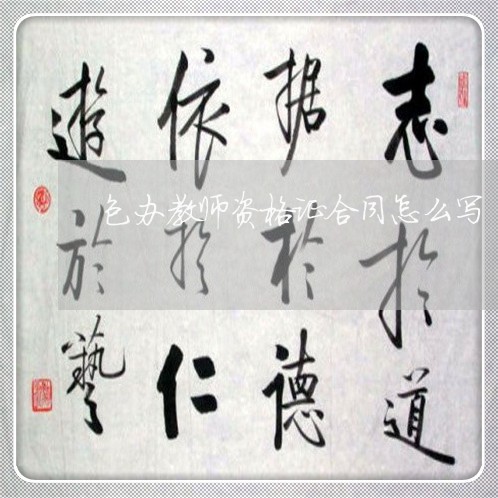 志於道
据於德
依於仁
遊於藝
包办教师资格证合同怎么写